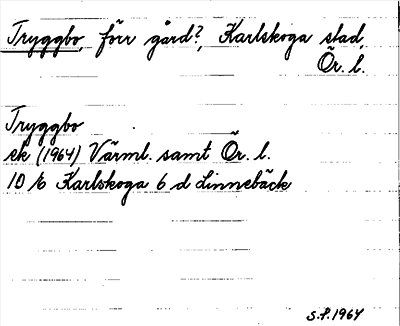 Tryggbo, förr gård?, Karlskoga stad,
Ör. l.
Tryggbo
ek (1964) Värml. samt Ör. l.
10 E Karlskoga 6 d Linnebäck
S.P. 1964